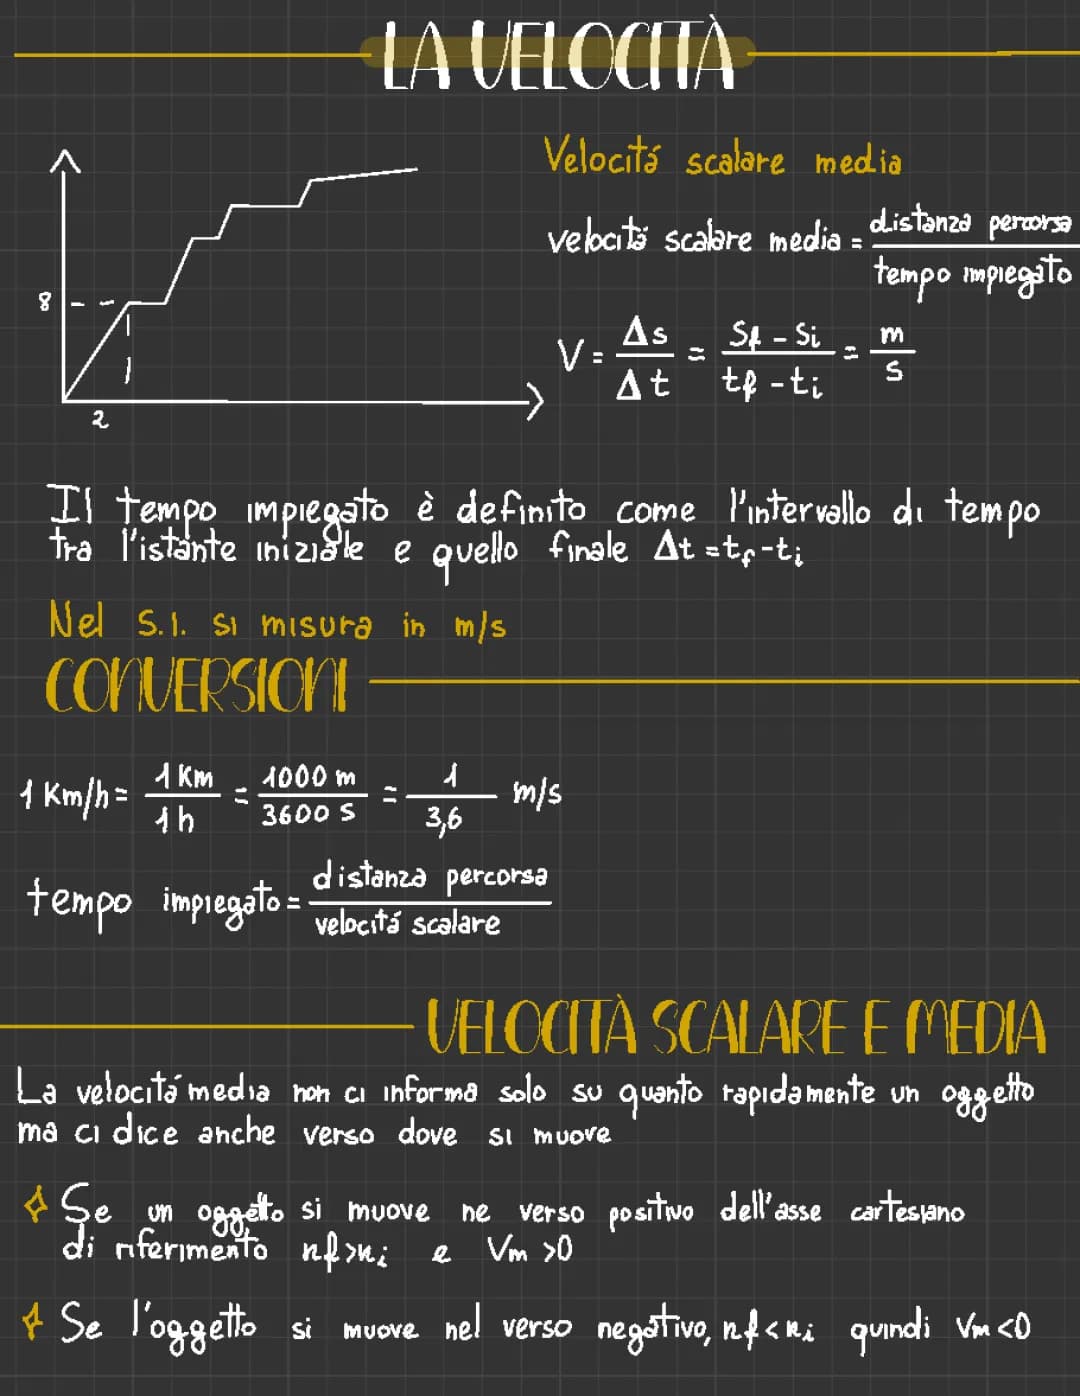 LA VELOCITÀ
8
2
Velocitá scalare media
velocitá scalare media = distanza percorsa / tempo impiegato
V = Δs / Δt = Sf - Si / tf - ti = m / s
Il tempo impiegato è definito come l'intervallo di tempo
tra l'istante iniziale e quello finale Δt = tf - ti
Nel S.I. si misura in m/s
CONVERSIONI
1 Km/h = 1 Km / 1 h = 1000 m / 3600 s = 1 / 3,6 m/s
tempo impiegato = distanza percorsa / velocitá scalare
VELOCITÀ SCALARE E MEDIA
La velocitá media non ci informa solo su quanto rapidamente un oggetto
ma ci dice anche verso dove si muove
Se un oggetto si muove ne verso positivo dell'asse cartesiano
di riferimento xf > xi e Vm > 0
Se l'oggetto si muove nel verso negativo, xf < xi quindi Vm < 0